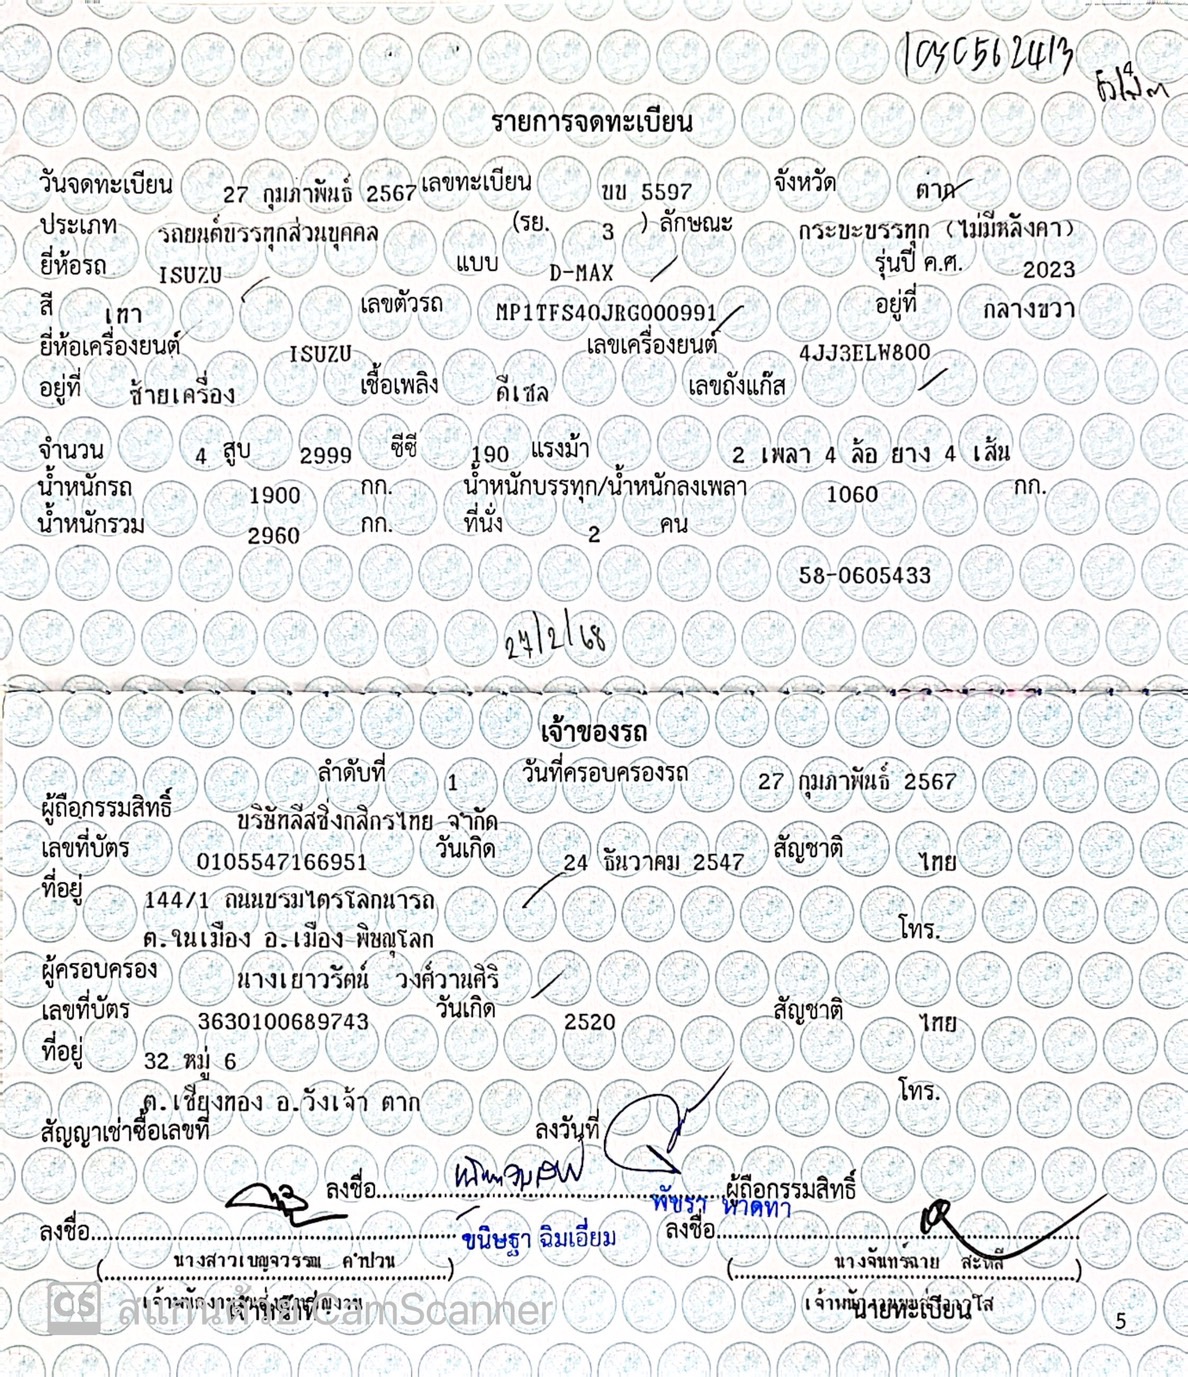 105C562413
รายการจดทะเบียน
วันจดทะเบียน 27 กุมภาพันธ์ 2567 เลขทะเบียน บบ 5597 จังหวัด ตาก
ประเภท รถยนต์บรรทุกส่วนบุคคล (รย. 3 ) ลักษณะ กระบะบรรทุก (ไม่มีหลังคา)
ยี่ห้อรถ ISUZU แบบ D-MAX รุ่นปี ค.ศ. 2023
สี เทา เลขตัวรถ MP1TFS40JRG000991 อยู่ที่ กลางขวา
ยี่ห้อเครื่องยนต์ ISUZU เลขเครื่องยนต์ 4JJ3ELW800
อยู่ที่ ซ้ายเครื่อง เชื้อเพลิง ดีเซล เลขถังแก๊ส
จำนวน 4 สูบ 2999 ซีซี 190 แรงม้า 2 เพลา 4 ล้อ ยาง 4 เส้น
น้ำหนักรถ 1900 กก. น้ำหนักบรรทุก/น้ำหนักลงเพลา 1060 กก.
น้ำหนักรวม 2960 กก. ที่นั่ง 2 คน
58-0605433
27/2/68
เจ้าของรถ
ลำดับที่ 1 วันที่ครอบครองรถ 27 กุมภาพันธ์ 2567
ผู้ถือกรรมสิทธิ์ บริษัทลีสซิ่งกสิกรไทย จำกัด
เลขที่บัตร 0105547166951 วันเกิด 24 ธันวาคม 2547 สัญชาติ ไทย
ที่อยู่ 144/1 ถนนบรมไตรโลกนารถ
ต.ในเมือง อ.เมือง พิษณุโลก โทร.
ผู้ครอบครอง นางเยาวรัตน์ วงศ์วานศิริ
เลขที่บัตร 3630100689743 วันเกิด 2520 สัญชาติ ไทย
ที่อยู่ 32 หมู่ 6
ต.เชียงทอง อ.วังเจ้า ตาก โทร.
สัญญาเช่าซื้อเลขที่ ลงวันที่
ลงชื่อ ผู้ถือกรรมสิทธิ์
พัชรา หาดทา
ลงชื่อ ขนิษฐา ฉิมเอี่ยม ลงชื่อ
(นางสาวเบญจวรรณ คำปวน) (นางจันทร์ฉาย สะหลี)
เจ้าหน้าที่ นายทะเบียน
CS สแกนด้วย CamScanner
5